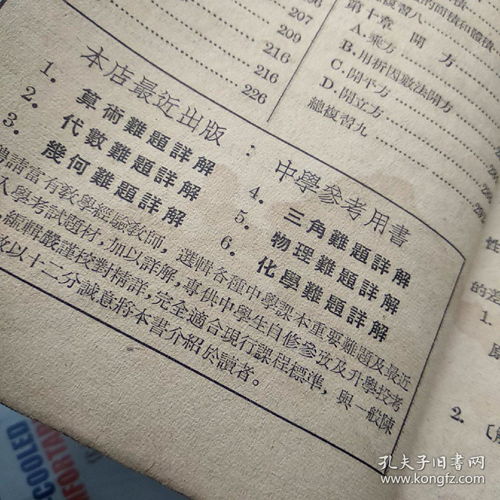 207
209
216
216
226
第十章 開方
A.乘方
B.用析因數法開方
C.開平方
D.開立方
總複習九
本店最近出版：中學參考用書
1. 算術難題詳解
2. 代數難題詳解
3. 幾何難題詳解
4. 三角難題詳解
5. 物理難題詳解
6. 化學難題詳解
請富有教學經驗教師，選輯各種中學課本重要難題及最近
入學考試題材，加以詳解，專供中學生自修參攷及升學投考
編輯嚴謹校對精詳，完全適合現行課程標準，與一般陳
以十二分誠意將本書介紹於讀者。
性
的
1.
原
2.
COOLED
COMFORTAB
孔夫子旧书网
www.kongfz.com